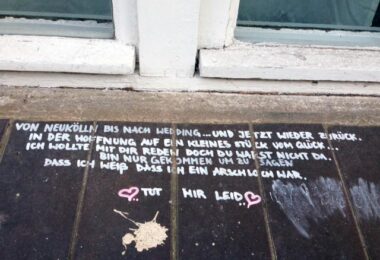 VON NEUKÖLLN BIS NACH WEDDING... UND JETZT WIEDER ZURÜCK.
IN DER HOFFNUNG AUF EIN KLEINES STÜCK VOM GLÜCK.
ICH WOLLTE MIT DIR REDEN DOCH DU WARST NICHT DA.
BIN NUR GEKOMMEN UM ZU SAGEN
DASS ICH WEIß DASS ICH EIN ARSCHLOCH WAR.
TUT MIR LEID